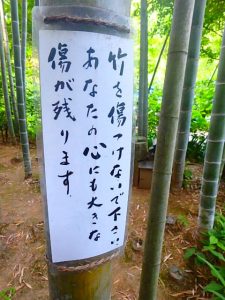 竹を傷つけないで下さい
あなたの心にも大きな
傷が残ります